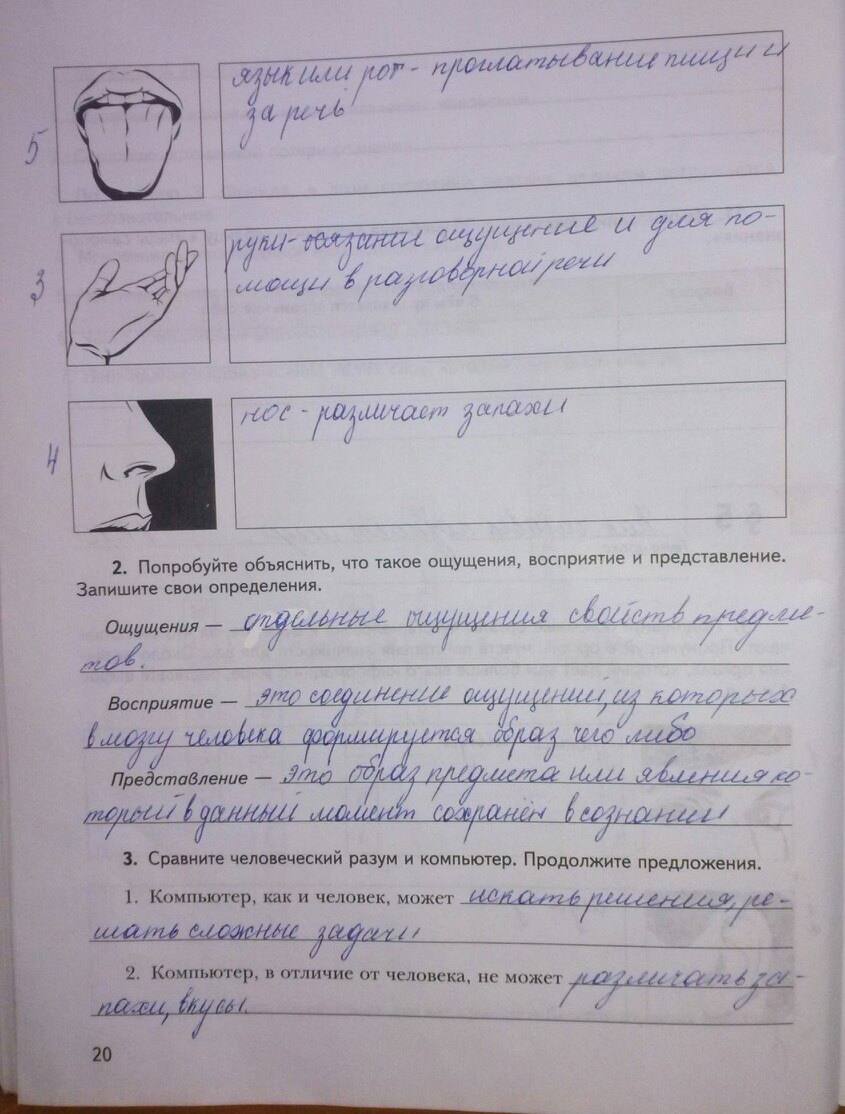 5
язык или рот - проглатывание пищи и
за речь
3
руки - осязание ощущение и для по-
мощи в разговорной речи
4
нос - различает запахи
2. Попробуйте объяснить, что такое ощущения, восприятие и представление.
Запишите свои определения.
Ощущения — отдельные ощущения свойств предме-
тов.
Восприятие — это соединение ощущений, из которых
в мозгу человека формируется образ чего либо
Представление — это образ предмета или явления ко-
торый в данный момент сохранён в сознании
3. Сравните человеческий разум и компьютер. Продолжите предложения.
1. Компьютер, как и человек, может искать решения, ре-
шать сложные задачи
2. Компьютер, в отличие от человека, не может различать за-
пахи, вкусы.
20